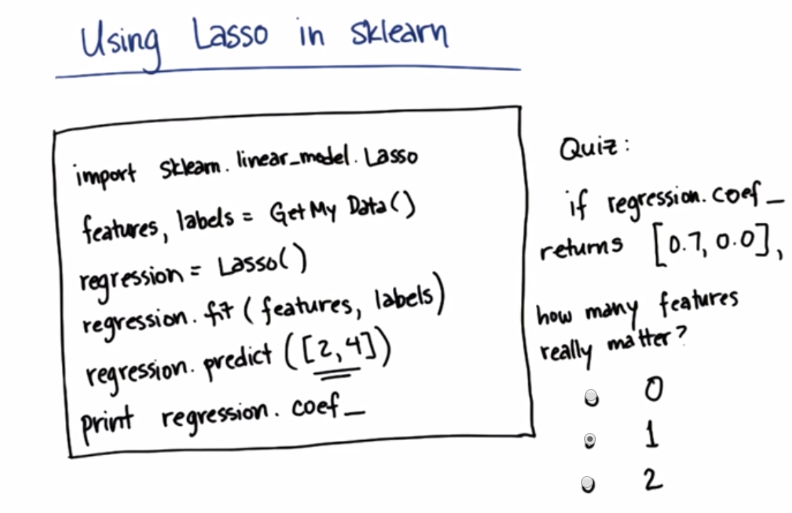 Using Lasso in sklearn
import sklearn.linear_model.Lasso
features, labels = GetMyData()
regression = Lasso()
regression.fit(features, labels)
regression.predict([2,4])
print regression.coef_
Quiz:
if regression.coef_
returns [0.7, 0.0],
how many features
really matter?
0
1
2